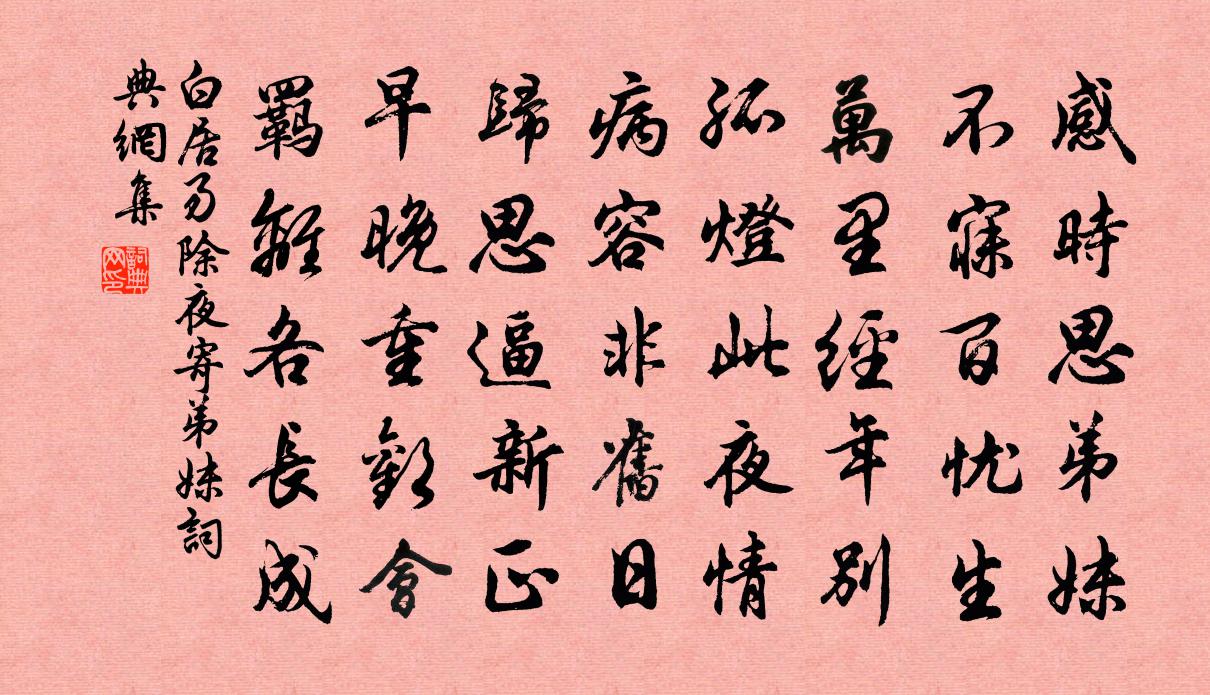 感時思弟妹
不寐百忧生
萬里經年別
孤燈此夜情
病容非舊日
歸思逼新正
早晚重歡會
羈離各長成
白居易除夜寄弟妹詞
典網集
詞典
网印